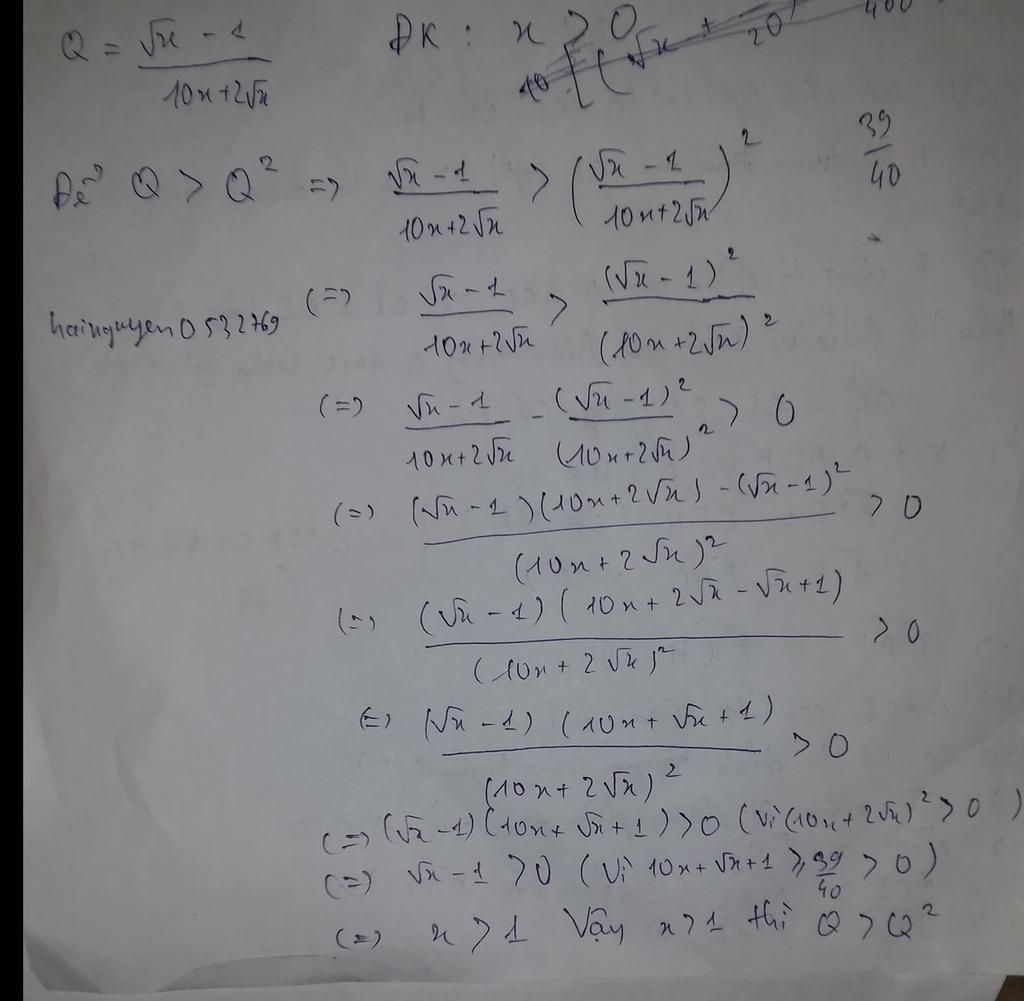 Q = (√x - 1)/(10x+2√x) ĐK : x > 0
40 [(√x + 20) 400
39/40
Để Q > Q² => (√x - 1)/(10x+2√x) > ((√x - 1)/(10x+2√x))²
hainguyen0532769
(=) (√x - 1)/(10x+2√x) > (√x - 1)²/(10x+2√x)²
(=) (√x - 1)/(10x+2√x) - (√x - 1)²/(10x+2√x)² > 0
(=) ((√x - 1)(10x+2√x) - (√x - 1)²)/(10x + 2√x)² > 0
(=) ((√x - 1)(10x + 2√x - √x + 1))/(10x + 2√x)² > 0
(=) ((√x - 1)(10x + √x + 1))/(10x + 2√x)² > 0
(=) (√x - 1)(10x + √x + 1) > 0 (Vì (10x + 2√x)² > 0)
(=) √x - 1 > 0 (Vì 10x + √x + 1 ⩾ 39/40 > 0)
(=) x > 1 Vậy x > 1 thì Q > Q²